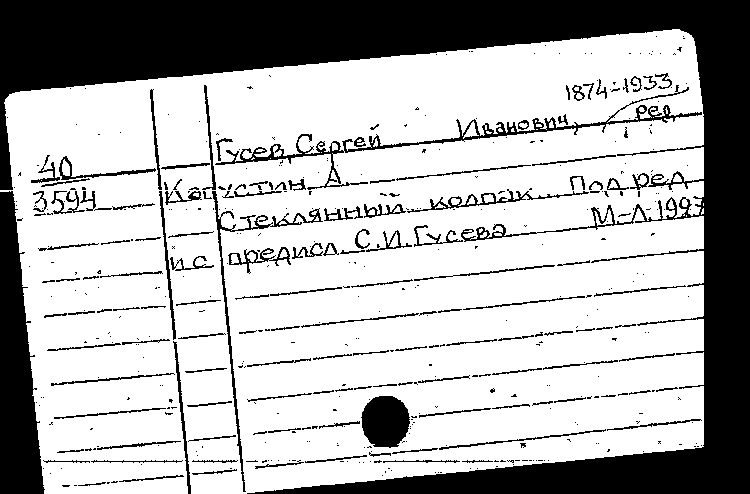 1874-1933,
Гусев, Сергей Иванович, ред.
40
3594 Капустин, А.
Стеклянный колпак... Под ред
и с предисл. С.И. Гусева М.-Л. 1927